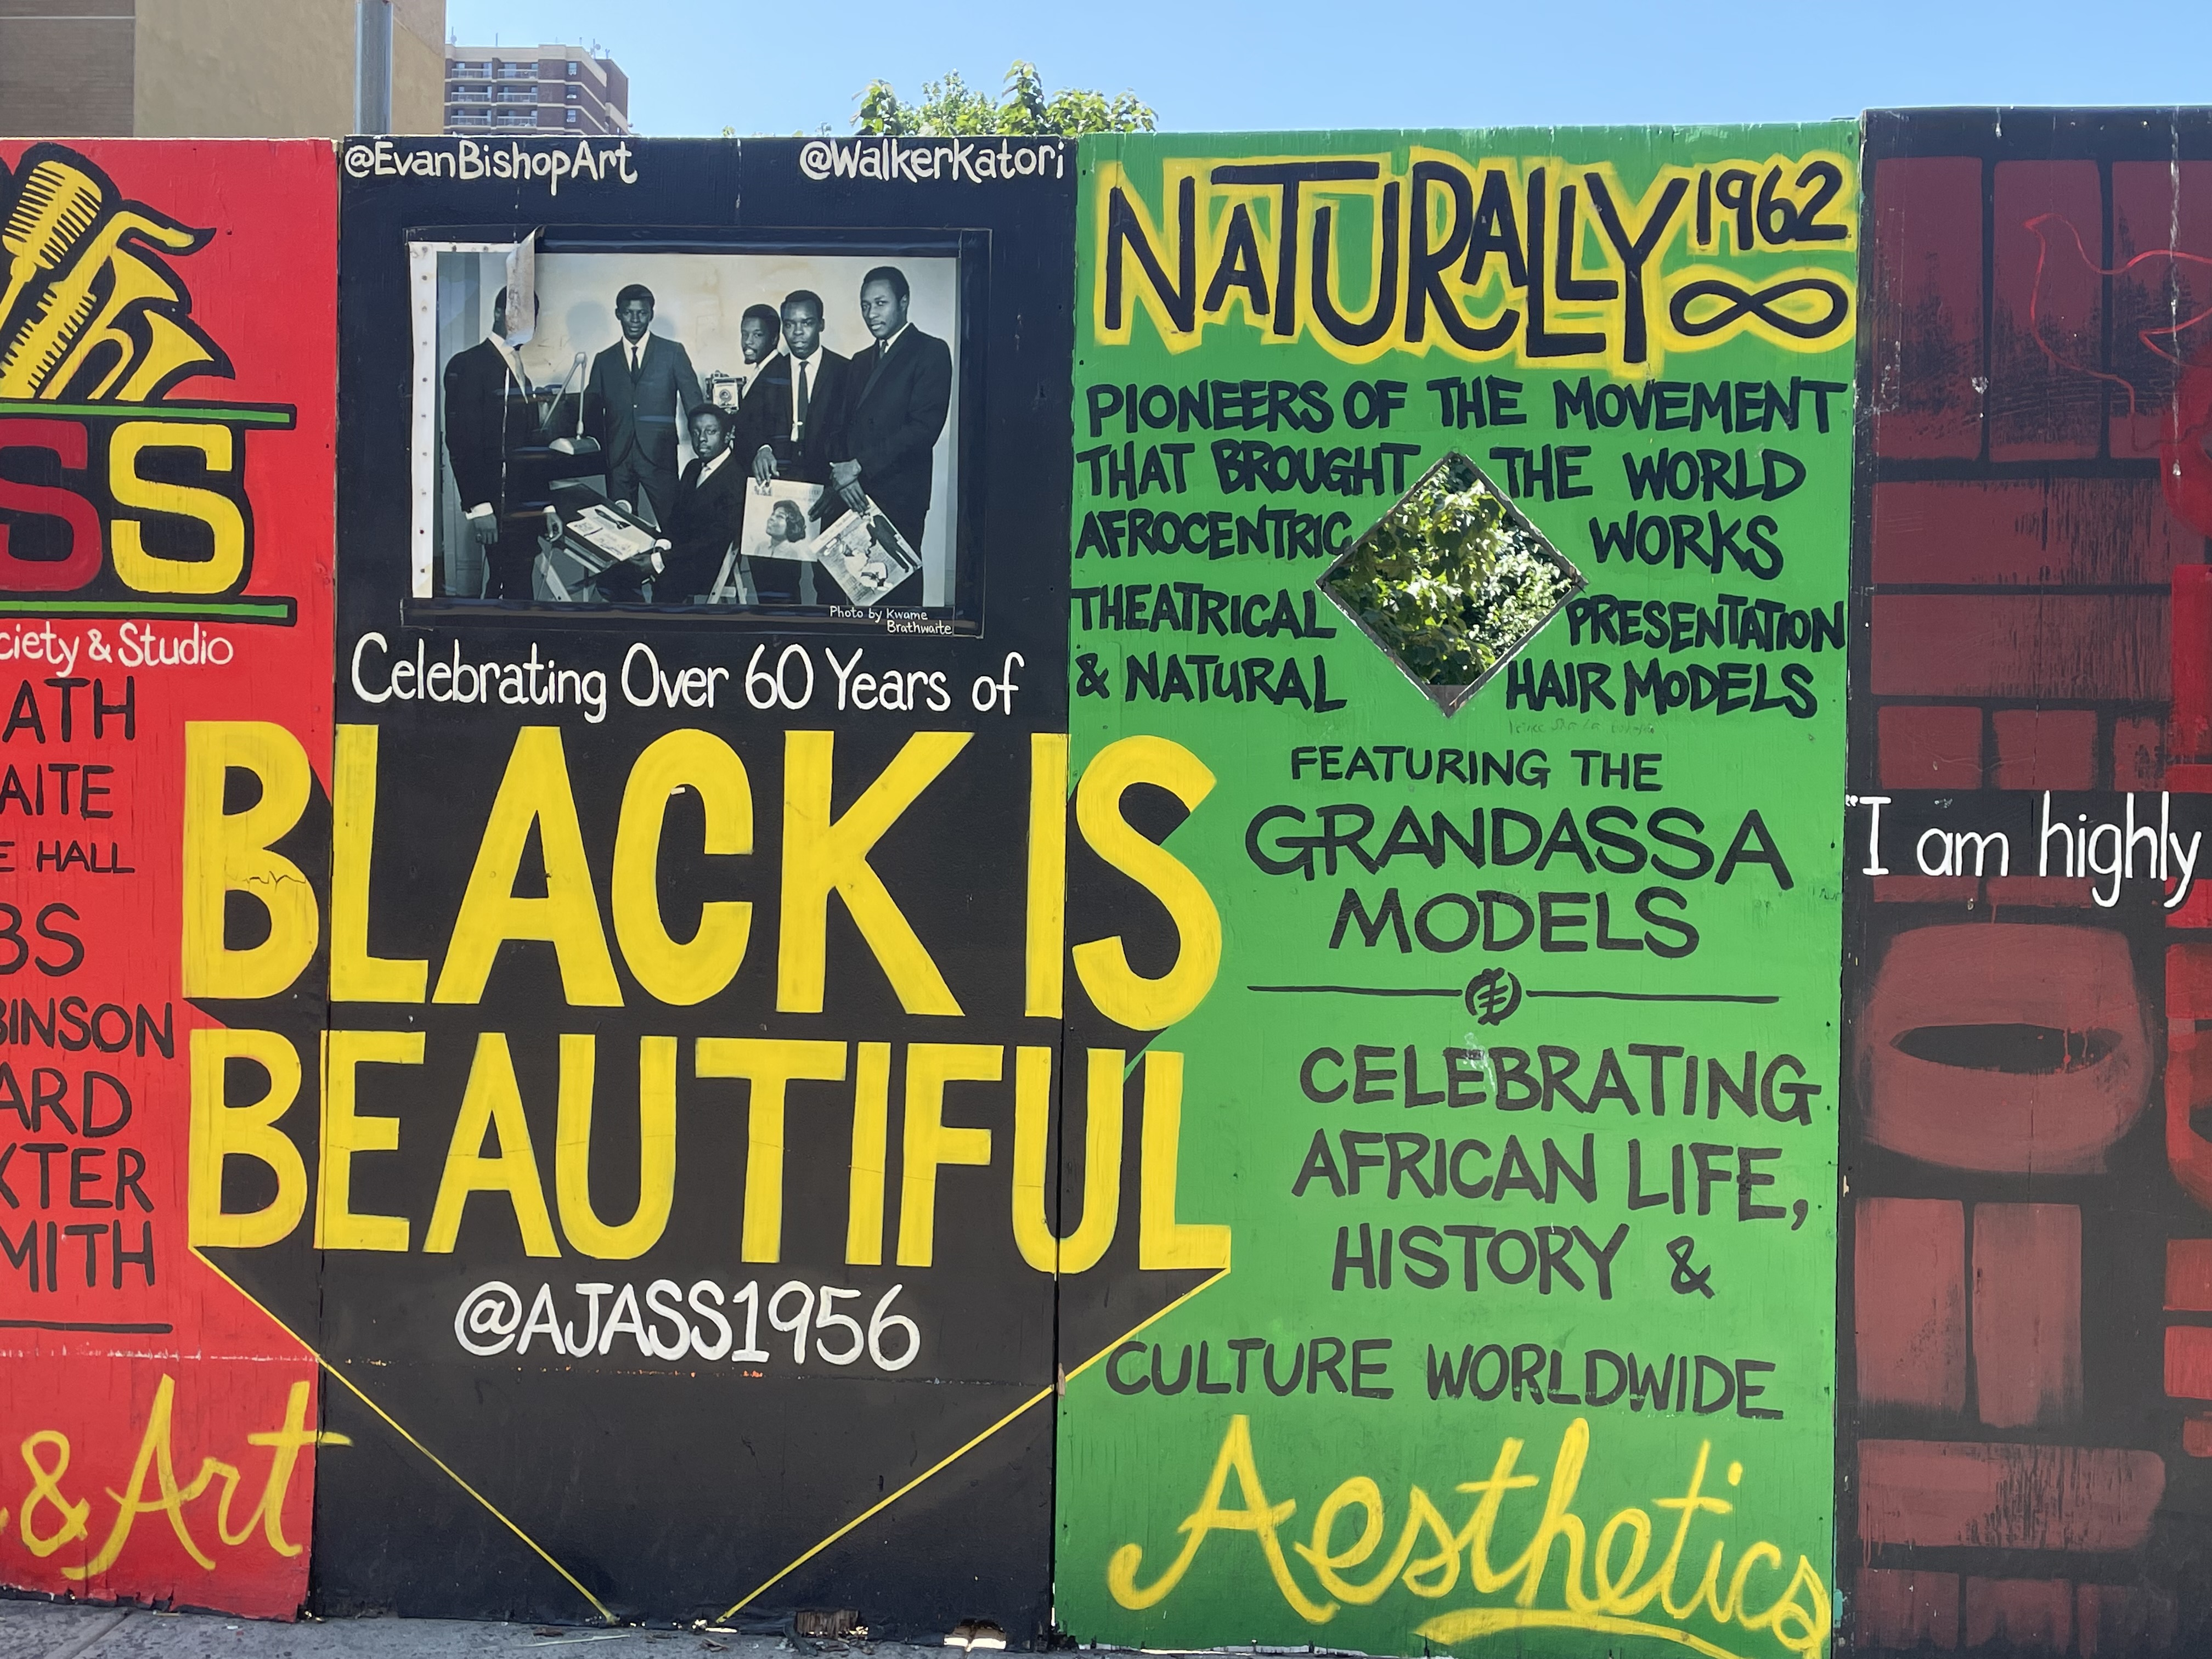 SS
ciety & Studio
ATH
AITE
E HALL
BS
BINSON
ARD
XTER
MITH
& Art
@EvanBishopArt
@WalkerKatori
Photo by Kwame
Brathwaite
Celebrating Over 60 Years of
BLACK IS
BEAUTIFUL
@AJASS1956
NATURALLY 1962
PIONEERS OF THE MOVEMENT
THAT BROUGHT THE WORLD
AFROCENTRIC WORKS
THEATRICAL PRESENTATION
& NATURAL HAIR MODELS
FEATURING THE
GRANDASSA
MODELS
CELEBRATING
AFRICAN LIFE,
HISTORY &
CULTURE WORLDWIDE
Aesthetics
"I am highly